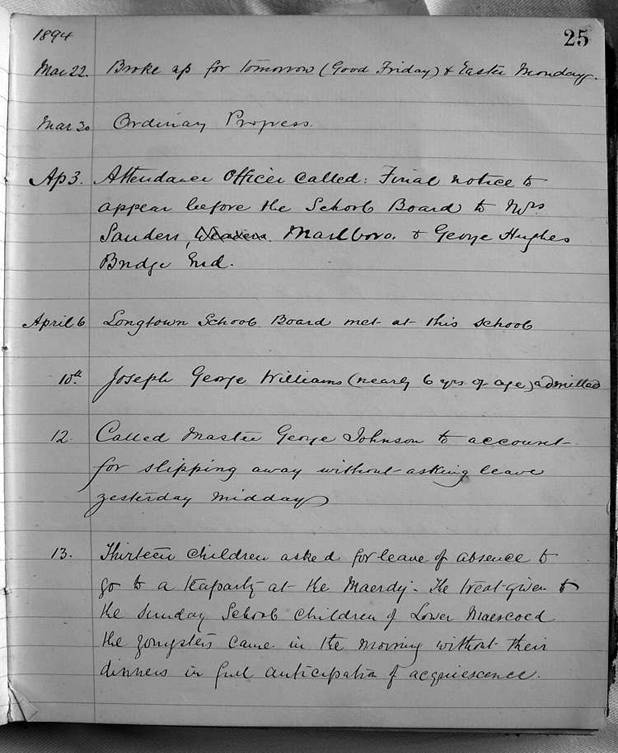 1894
25
Mar 22. Broke up for tomorrow (Good Friday) & Easter Monday.
Mar 30 Ordinary Progress.
Ap 3. Attendance Officer called: Final notice to
appear before the School Board to Mrs
Sanders, Marlboro. & George Hughes
Bridge End.
April 6 Longtown School Board met at this school
10th. Joseph George Williams (nearly 6 yrs of age) admitted
12. Called Master George Johnson to account
for slipping away without asking leave
yesterday midday
13. Thirteen children asked for leave of absence to
go to a teaparty at the Maerdy. The treat given to
the Sunday School children of Lower Maescoed
the youngsters came in the morning without their
dinners in full anticipation of acquiescence.